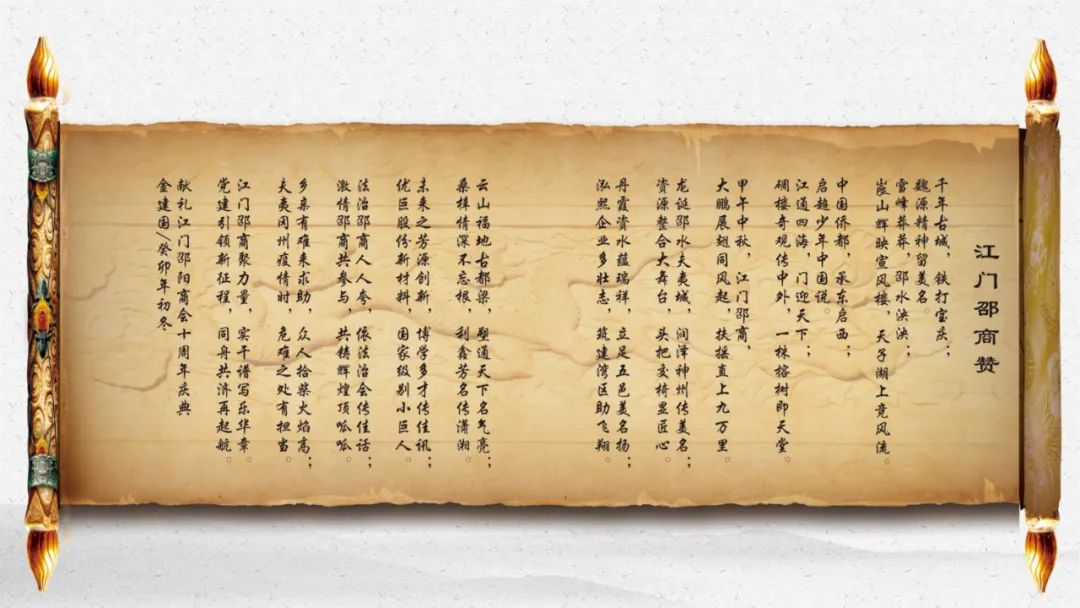 江门邵商赞
千年古城，铁打宝庆；
魏源精神留美名。
雪峰莽莽，邵水泱泱；
崀山辉映宣风楼，天子湖上竞风流。
中国侨都，承东启西；
启超少年中国说。
江通四海，门迎天下；
碉楼奇观传中外，一株榕树即天堂。
甲午中秋，江门邵商，
大鹏展翅同风起，扶摇直上九万里。
龙诞邵水夫夷城，润泽神州传美名；
资源整合大舞台，头把交椅显匠心。
丹霞资水蕴瑞祥，立足五邑美名扬；
泓熙企业多壮志，筑建湾区助飞翔。
云山福地古都梁，塑通天下名气亮；
桑梓情深不忘根，利鑫芳名传潇湘。
未来之芳源创新，博学多才传佳讯；
优巨股份新材料，国家级别小巨人。
法治邵商人人夸，依法治会传佳话；
激情邵商共参与，共铸辉煌顶呱呱。
乡亲有难来求助，众人拾柴火焰高；
夫夷冈州疫情时，危难之处有担当。
江门邵商聚力量，实干谱写乐华章。
党建引领新征程，同舟共济再起航。
献礼江门邵阳商会十周年庆典
金建国/癸卯年初冬